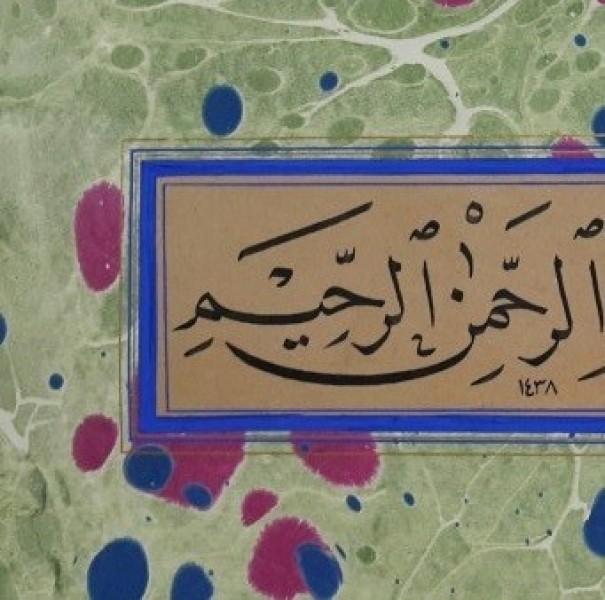 ٱلرَّحْمٰنِ ٱلرَّحِيمِ
١٤٣٨